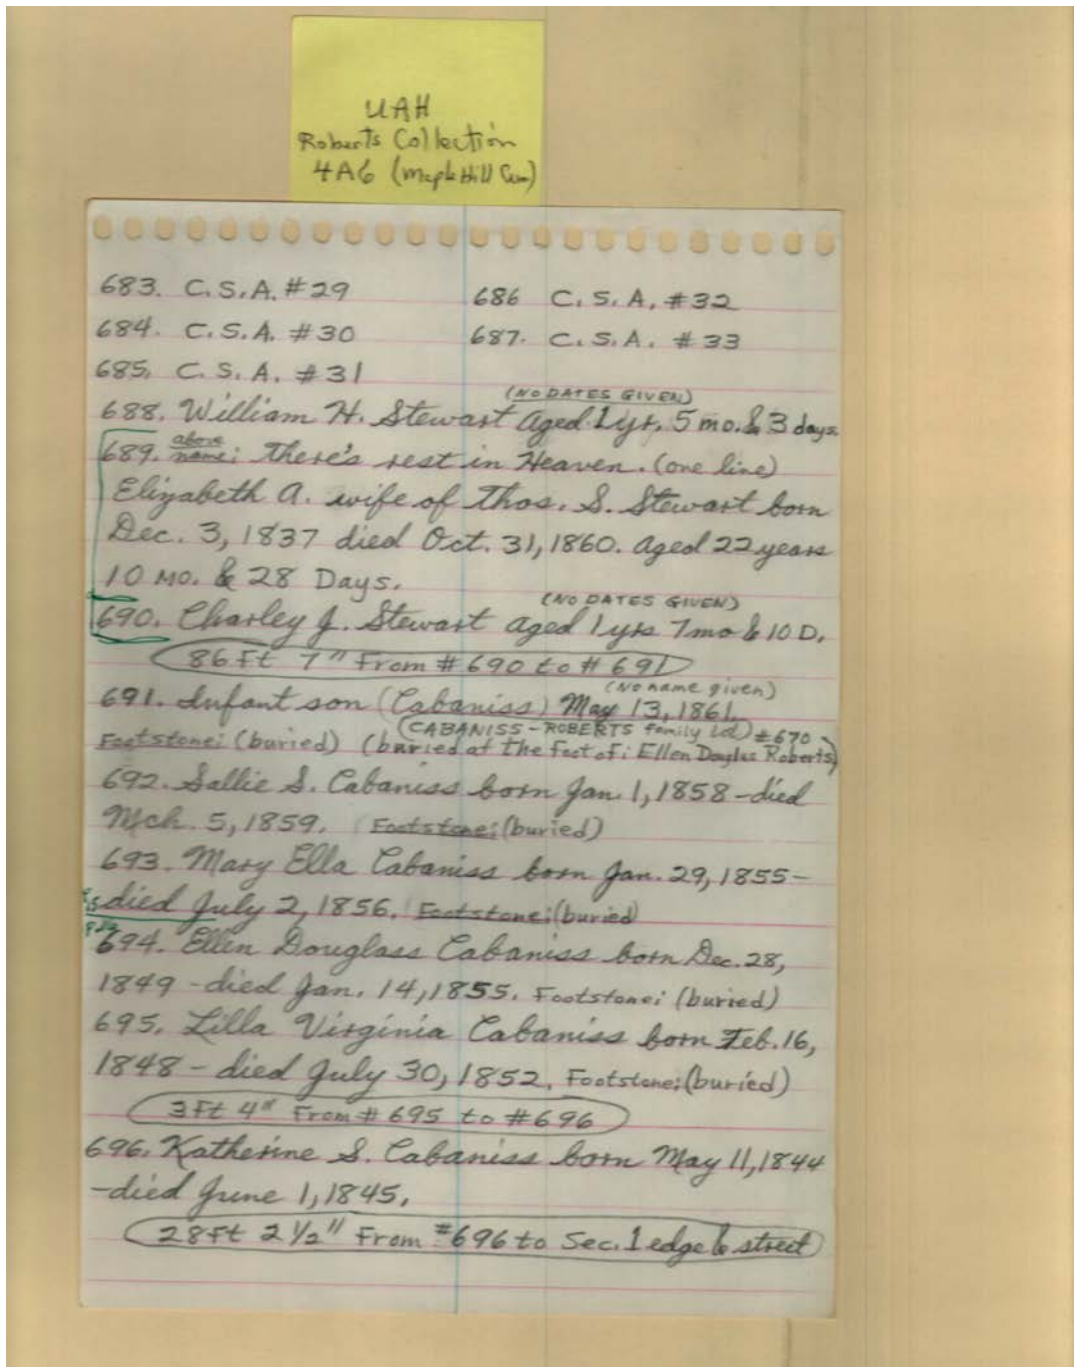 UAH
Roberts Collection
4A6 (Maple Hill Cem)
683. C.S.A. #29
686 C.S.A. #32
684. C.S.A. #30
687. C.S.A. #33
685. C.S.A. #31
(NO DATES GIVEN)
688. William H. Stewart Aged 1 yr. 5 mo. & 3 days.
689. above name: There's rest in Heaven. (one line)
Elizabeth A. wife of Thos. S. Stewart born
Dec. 3, 1837 died Oct. 31, 1860. Aged 22 years
10 MO. & 28 Days.
(NO DATES GIVEN)
690. Charley J. Stewart aged 1 yrs 7 mo & 10 D.
86 Ft 7" From #690 to #691
(No name given)
691. Infant son (Cabaniss) May 13, 1861.
(CABANISS-ROBERTS family Lot) #670
Footstone: (buried) (buried at the foot of: Ellen Douglas Roberts)
692. Sallie S. Cabaniss born Jan. 1, 1858 - died
Mch. 5, 1859. Footstone: (buried)
693. Mary Ella Cabaniss born Jan. 29, 1855 -
died July 2, 1856. Footstone: (buried
694. Ellen Douglass Cabaniss born Dec. 28,
1849 - died Jan. 14, 1855. Footstone: (buried)
695. Lilla Virginia Cabaniss born Feb. 16,
1848 - died July 30, 1852. Footstone: (buried)
3 Ft 4" From #695 to #696
696. Katherine S. Cabaniss born May 11, 1844
- died June 1, 1845.
28 Ft 2 1/2" From #696 to Sec. 1 edge & street